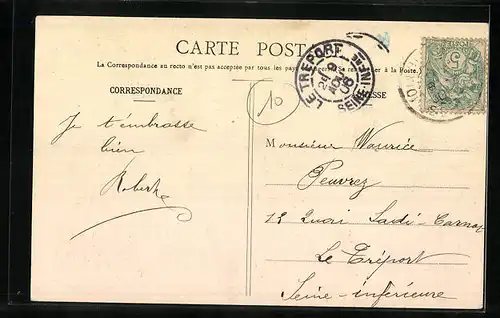 CARTE POSTALE
La Correspondance au recto n'est pas acceptée par tous les pays à la Poste.
CORRESPONDANCE
LE TREPORT
SEINE INFRE
10
Je t'embrasse
bien
Monsieur Maurice
12 Quai Sadi-Carnot
Le Tréport
Seine-inférieure